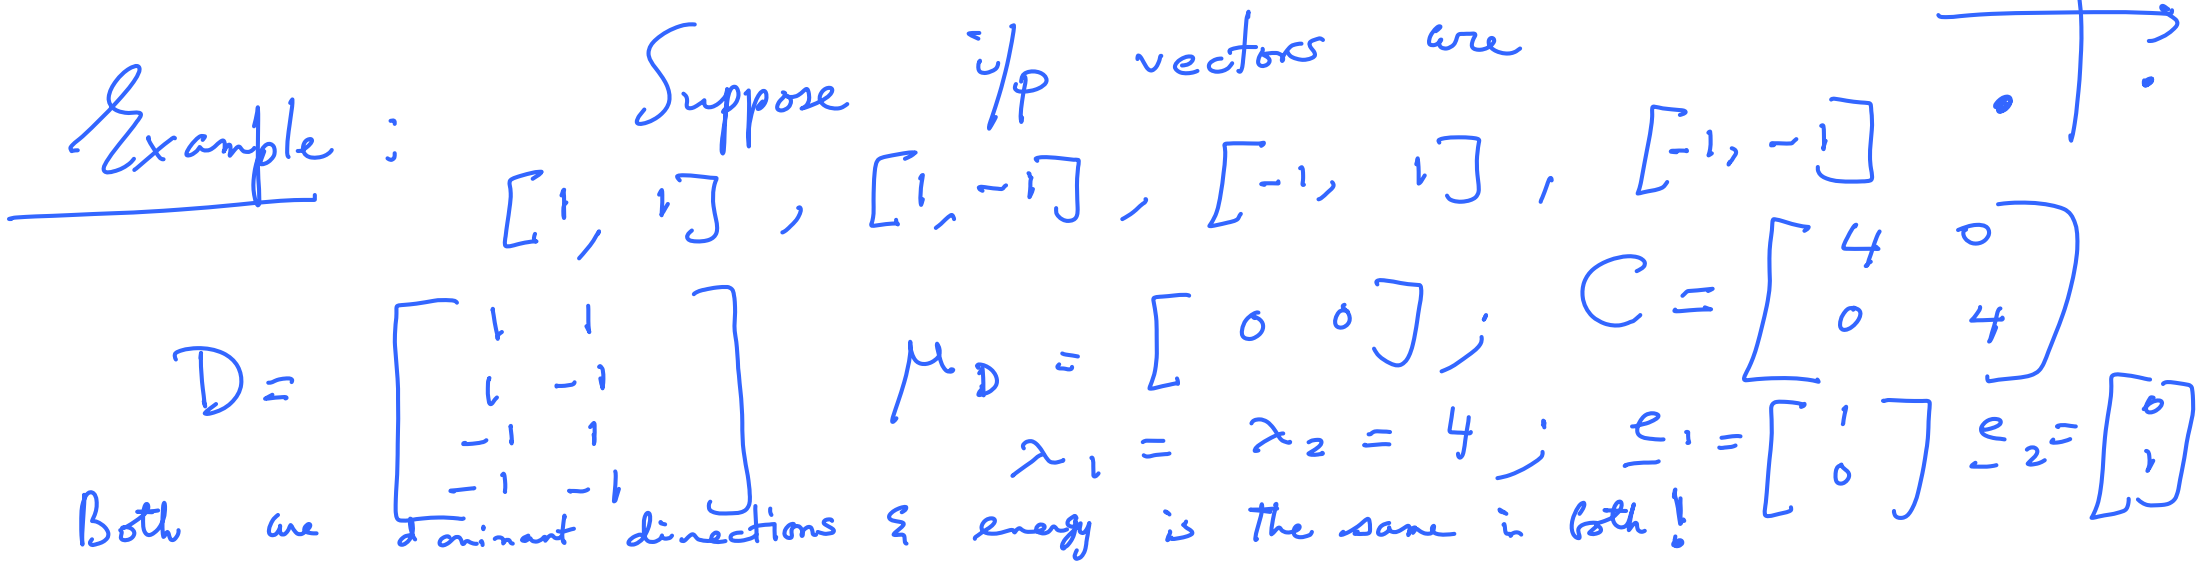 Example : Suppose i/p vectors are
[1, 1] , [1, -1] , [-1, 1] , [-1, -1]
D = [ 1 1
1 -1
-1 1
-1 -1 ]
μ_D = [ 0 0 ] ; C = [ 4 0
0 4 ]
λ₁ = λ₂ = 4 ; e₁ = [ 1
0 ] e₂ = [ 0
1 ]
Both are dominant directions & energy is the same in both!